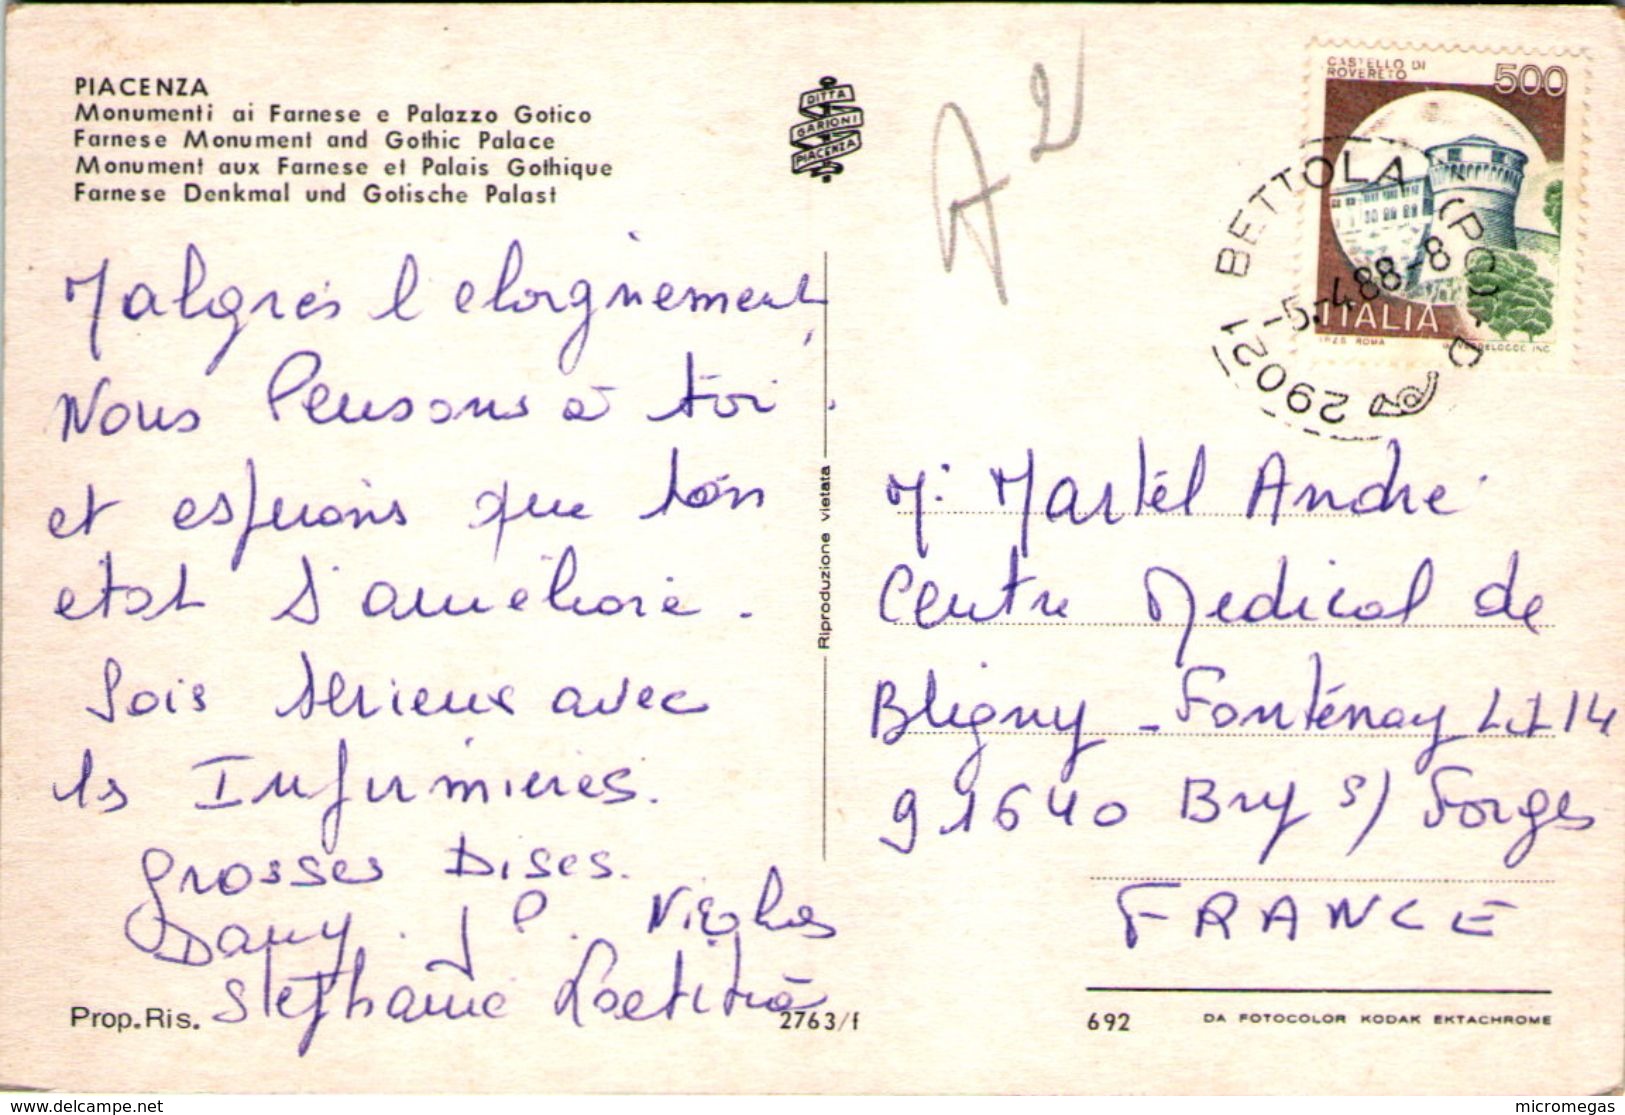 PIACENZA
Monumenti ai Farnese e Palazzo Gotico
Farnese Monument and Gothic Palace
Monument aux Farnese et Palais Gothique
Farnese Denkmal und Gotische Palast
DITTA
GARIONI
PIACENZA
A2
CASTELLO DI
ROVERETO
500
ITALIA
I.P.Z.S. ROMA
29021 BETTOLA (PC) - D
-5.-4.88-8
Malgres l'eloignement,
Nous Pensons à toi.
et esperons que ton
etat s'améliore.
Sois serieux avec
les Infirmieres.
Grosses Bises.
Dany. J P. Nicolas
Stephanie Laetitia
Riproduzione vietata
Mr Martel André
Centre Medical de
Bligny - Fontenay LJ14
91640 Bry s/ Forges
FRANCE
Prop.Ris.
2763/f
692
DA FOTOCOLOR KODAK EKTACHROME
https://www.delcampe.net
micromegas